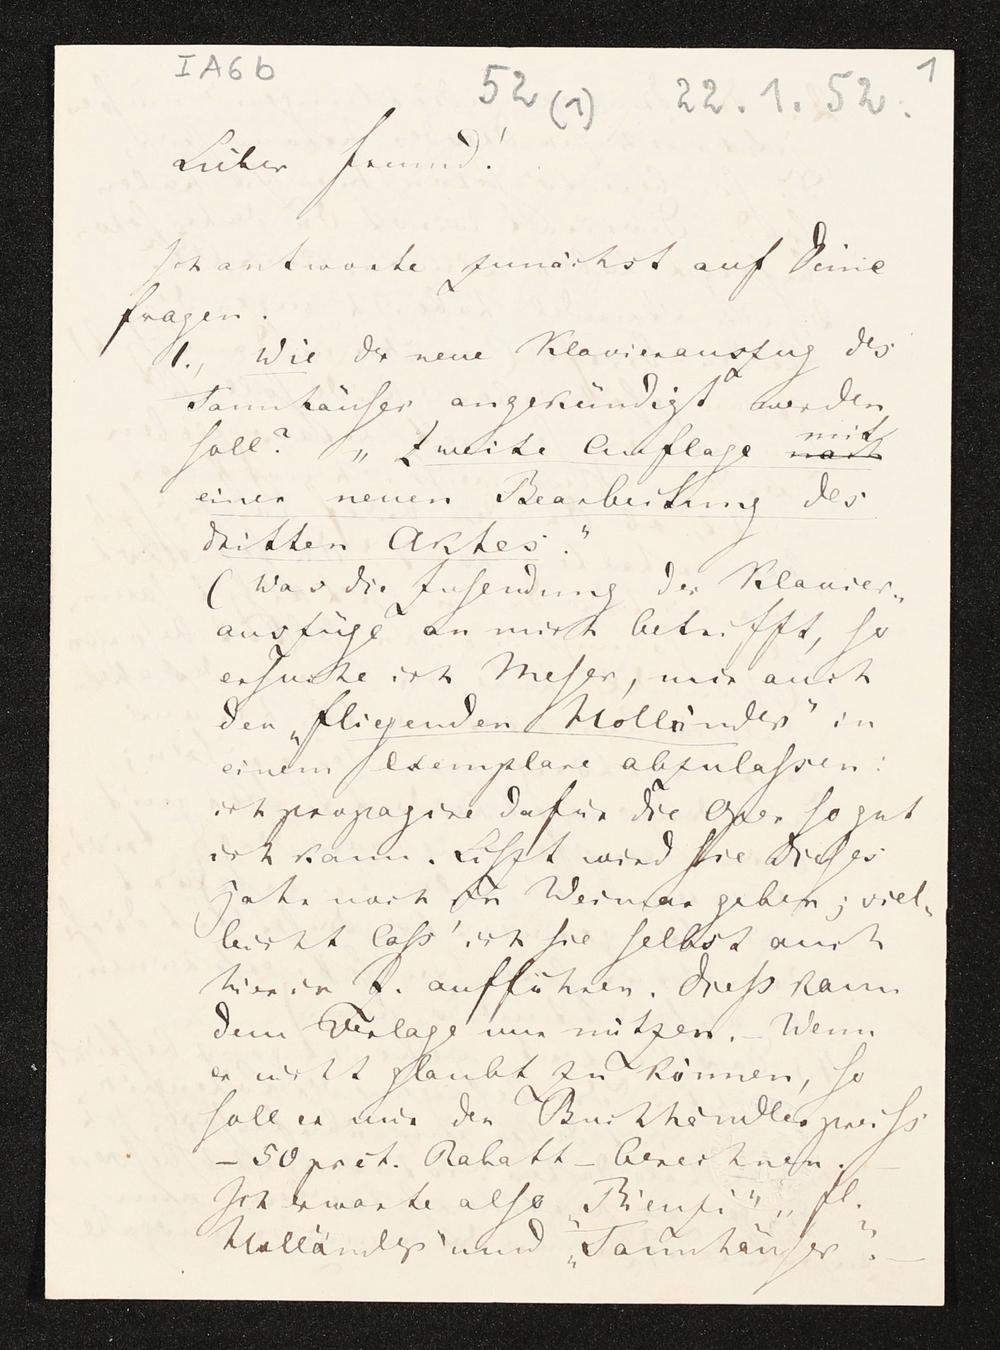 IA6b
52 (1) 22.1.52. 1
Lieber Freund!
Ich antworte zunächst auf Deine
Fragen.
1., Wie der neue Klavierauszug des
Tannhäuser angekündigt werden
soll? „Zweite Auflage nach mit
einer neuen Bearbeitung des
dritten Aktes."
(Was die Zusendung der Klavier-
auszüge an mich betrifft, so
ersuche ich Meser, mir auch
den „fliegenden Holländer" in
einem Exemplare abzulassen:
ich propagire dafür die Oper so gut
ich kann. Liszt wird sie dieses
Jahr noch in Weimar geben; viel-
leicht lass' ich sie selbst auch
hier in Z. aufführen. Diess kann
dem Verlage nur nützen. – Wenn
er nicht glaubt zu können, so
soll er mir den Buchhändlerpreiss
– 50 prct. Rabatt – berechnen.
Ich erwarte also „Rienzi", „fl.
Holländer" und „Tannhäuser". –